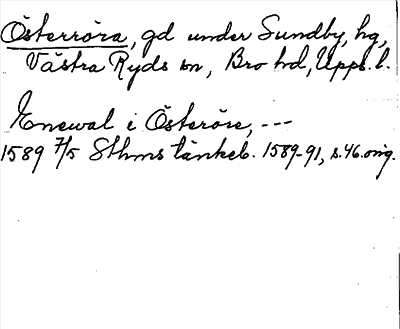 Österröra, gd under Sundby, hg,
Västra Ryds sn, Bro hd, Uppl. l.
Enewal i Österöre, ---
1589 7/5 Sthms tänkeb. 1589-91, s. 46. orig.